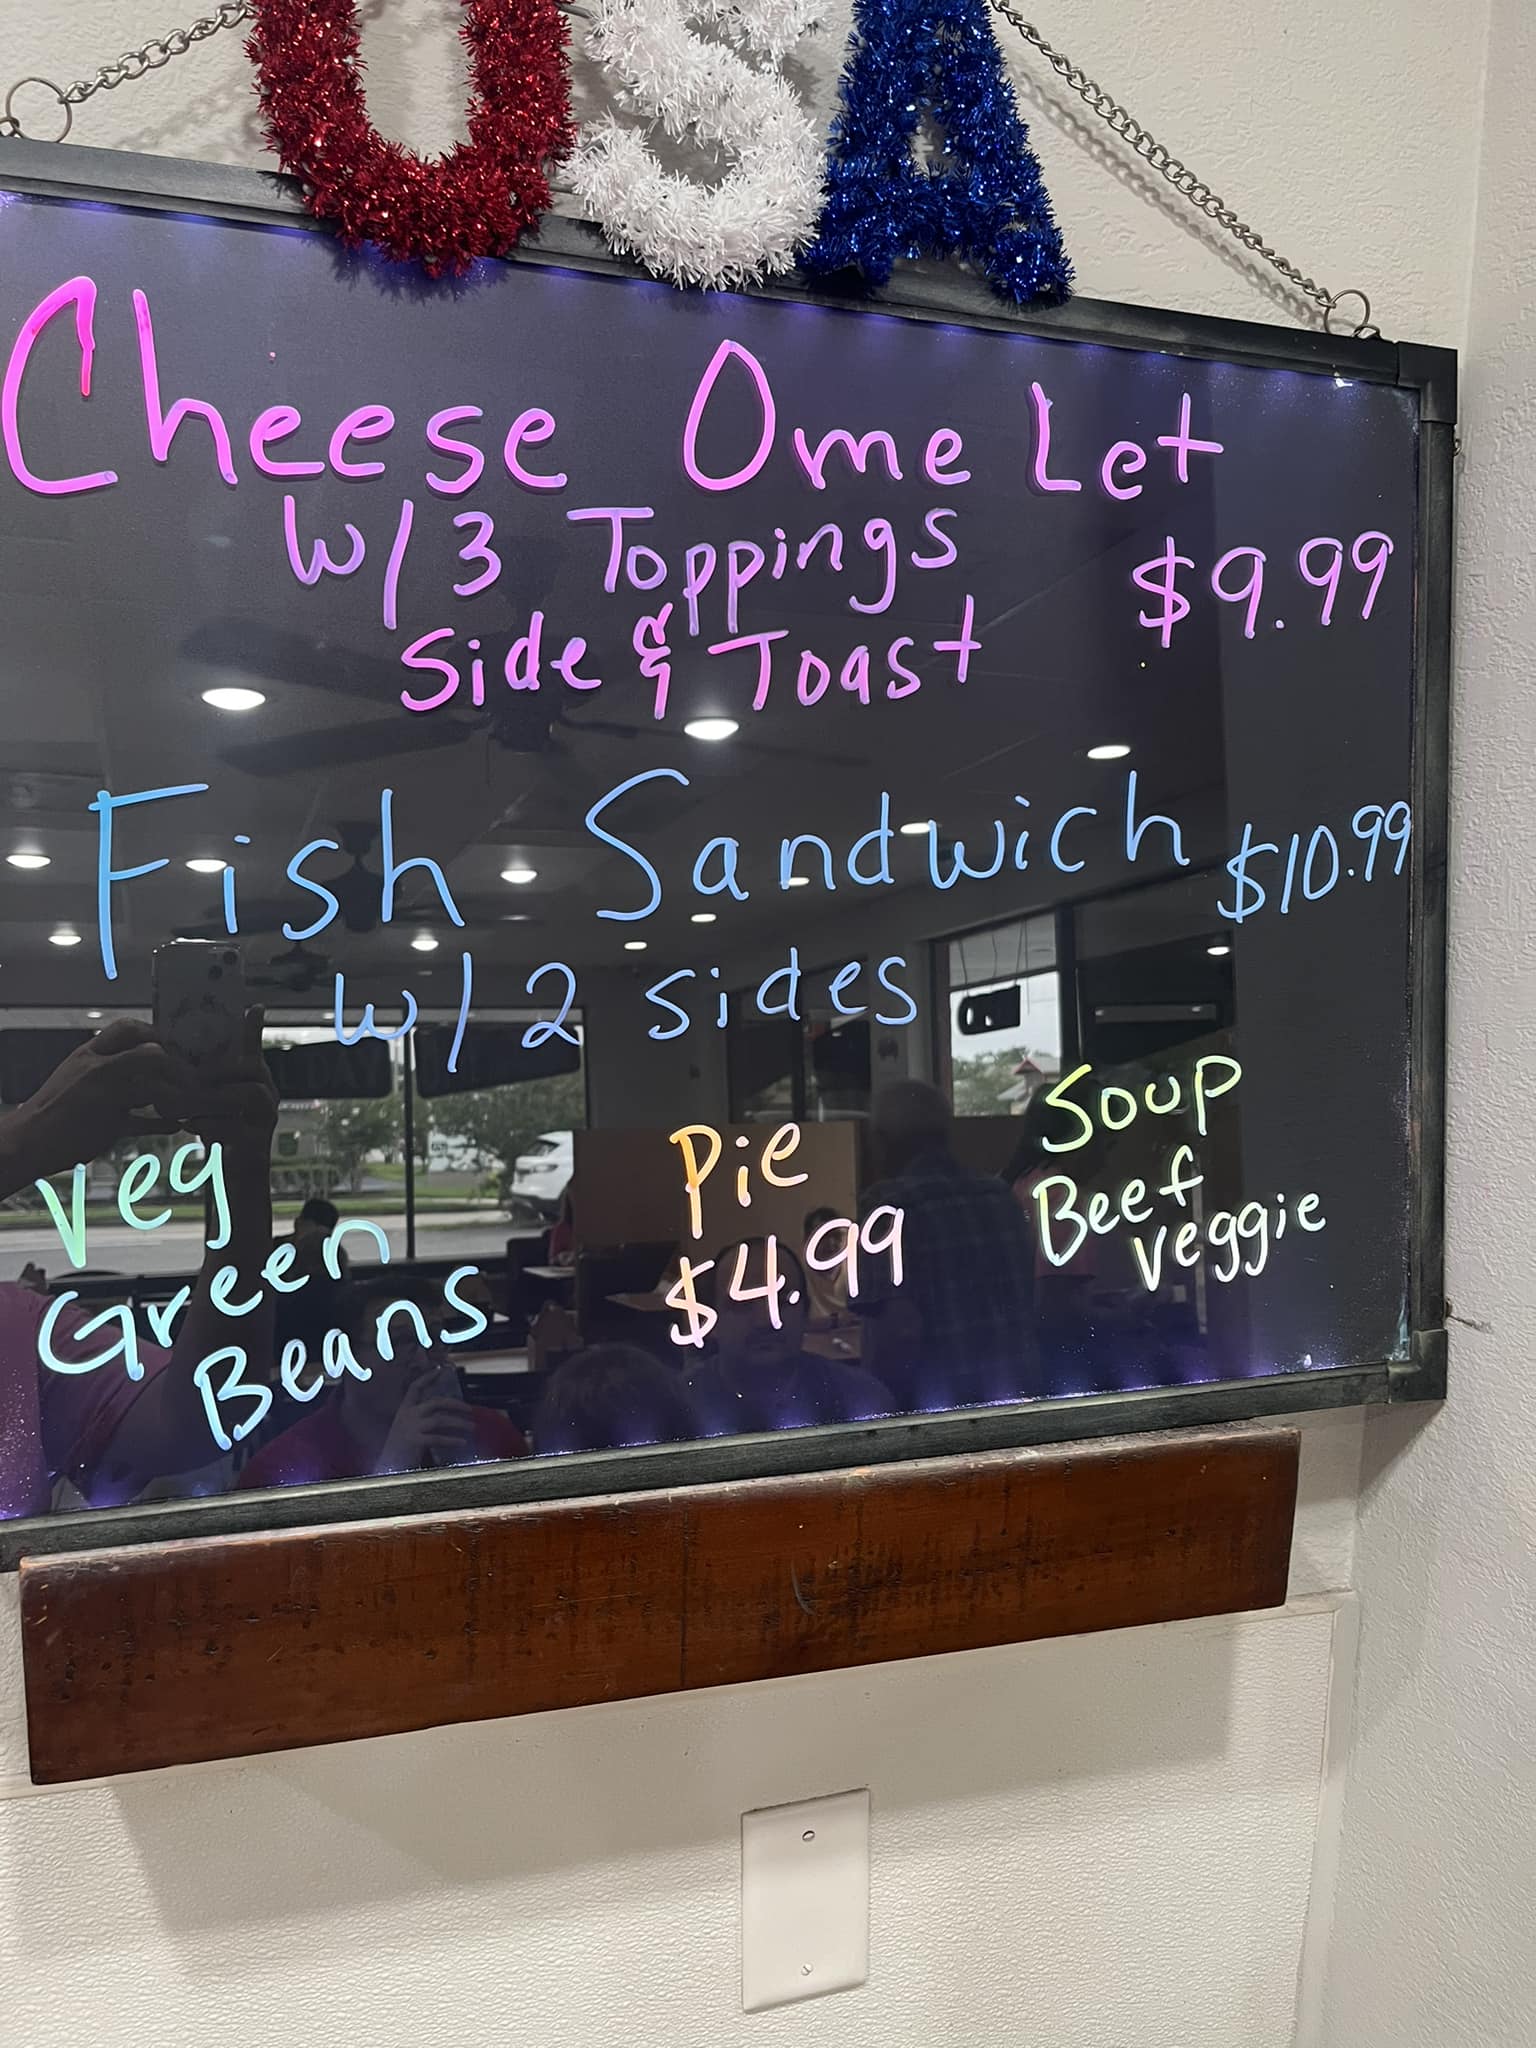 USA
Cheese OmeLet
w/ 3 Toppings
Side & Toast
$9.99
Fish Sandwich $10.99
w/ 2 sides
Veg
Green
Beans
Pie
$4.99
Soup
Beef
Veggie